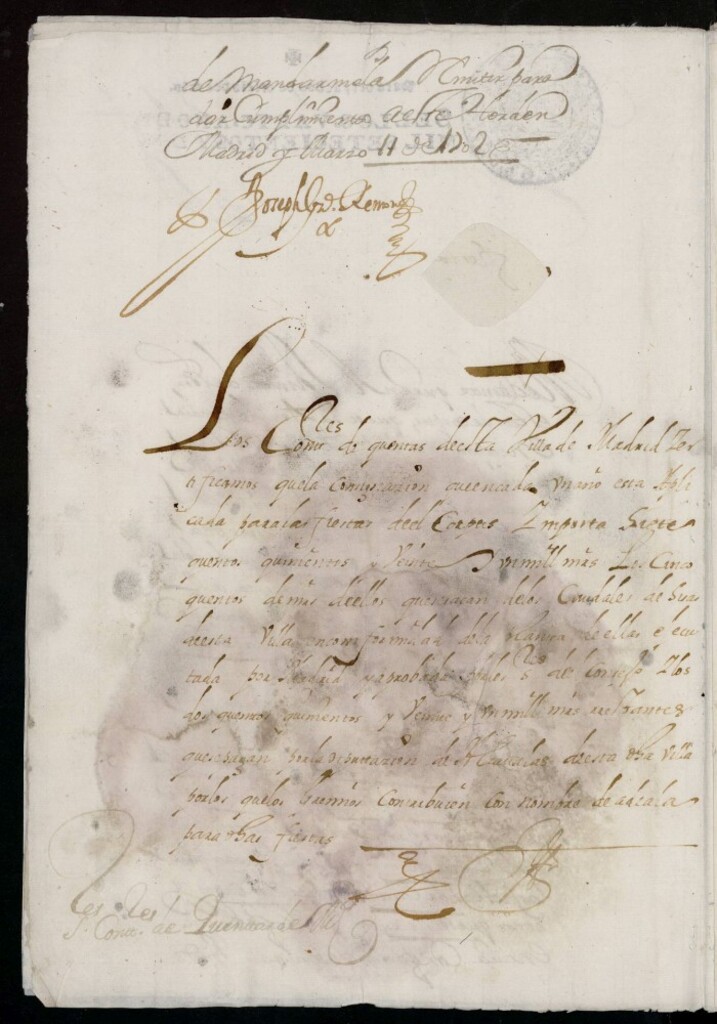 de Mandarmela Remitir para
dar Cumplimiento a este Horden
Madrid y Marzo 11 de 1702
Joseph
Los Cont.res de quentas desta Villa de Madrid Zer
tificamos que la consignacion en cada un año esta Apli
cada para las fiestas del Corpus Importa Siete
quentos quinientos y Veinte y un mill mrs Los Cinco
quentos de mrs dellos que sacan de los Caudales de Sisas
desta Villa en conformidad de la planta de ellas e ecu
tada por Madrid y aprobada por los S.res del Consejo Y los
dos quentos quinientos y Veinte y un mill mrs restantes
que se pagan por la Diputacion de Alcavalas desta dha Villa
por los quelos Gremios Contribuien con nombre de alcala
para dhas fiestas
S.res Cont.res de Quentas de M.d